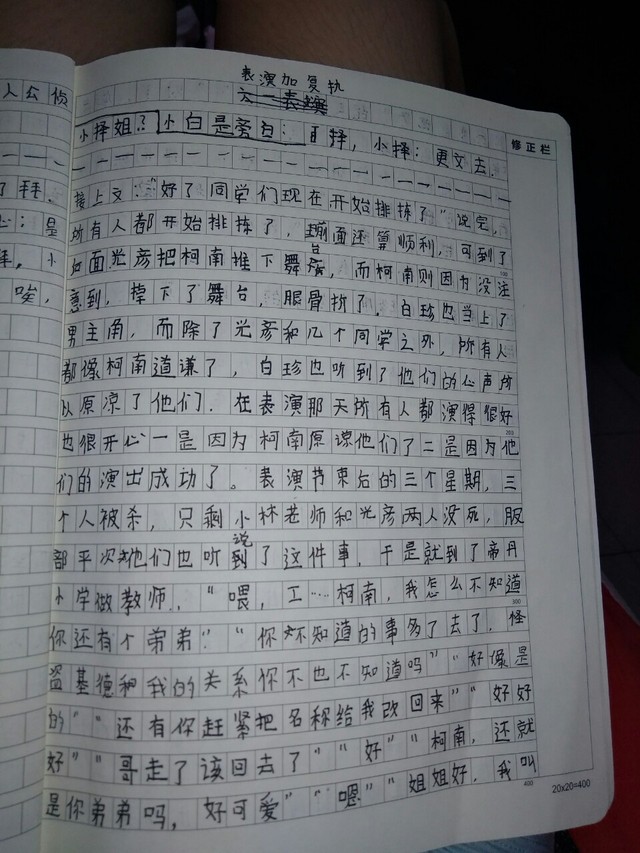 表演加复执
人公侦
小择姐？小白是旁白：百择，小择：更文去，
修正栏
了拜．
接上文："好了同学们现在开始排拣了"说完，
心：是
所有人都开始排拣了，前面还算顺利，可到了
如面光彦把柯南推下舞台，而柯南则因为没注
唉，
意到，掉下了舞台，服骨折了，白珍也当上了
男主角，而除了光彦和几个同学之外，所有人
都像柯南道谦了，白珍也听到了他们的心声所
以原凉了他们．在表演那天所有人都演得很好
200
也很开心一是因为柯南原谅他们了二是因为他
们的演出成功了。表演节束后的三个星期，三
个人被杀，只剩小林老师和光彦两人没死，服
部平次他们也听说到了这件事，于是就到了帝丹
小学做教师．"喂，工……柯南，我怎么不知道
300
你还有个弟弟""你不知道的事多了去了，怪
盗基德和我的关系你不也不知道吗""好像是
的""还有你赶紧把名称给我改回来""好好
好""哥走了该回去了""好""柯南，还就
是你弟弟吗，好可爱""嗯""姐姐好，我叫
400
20x20=400